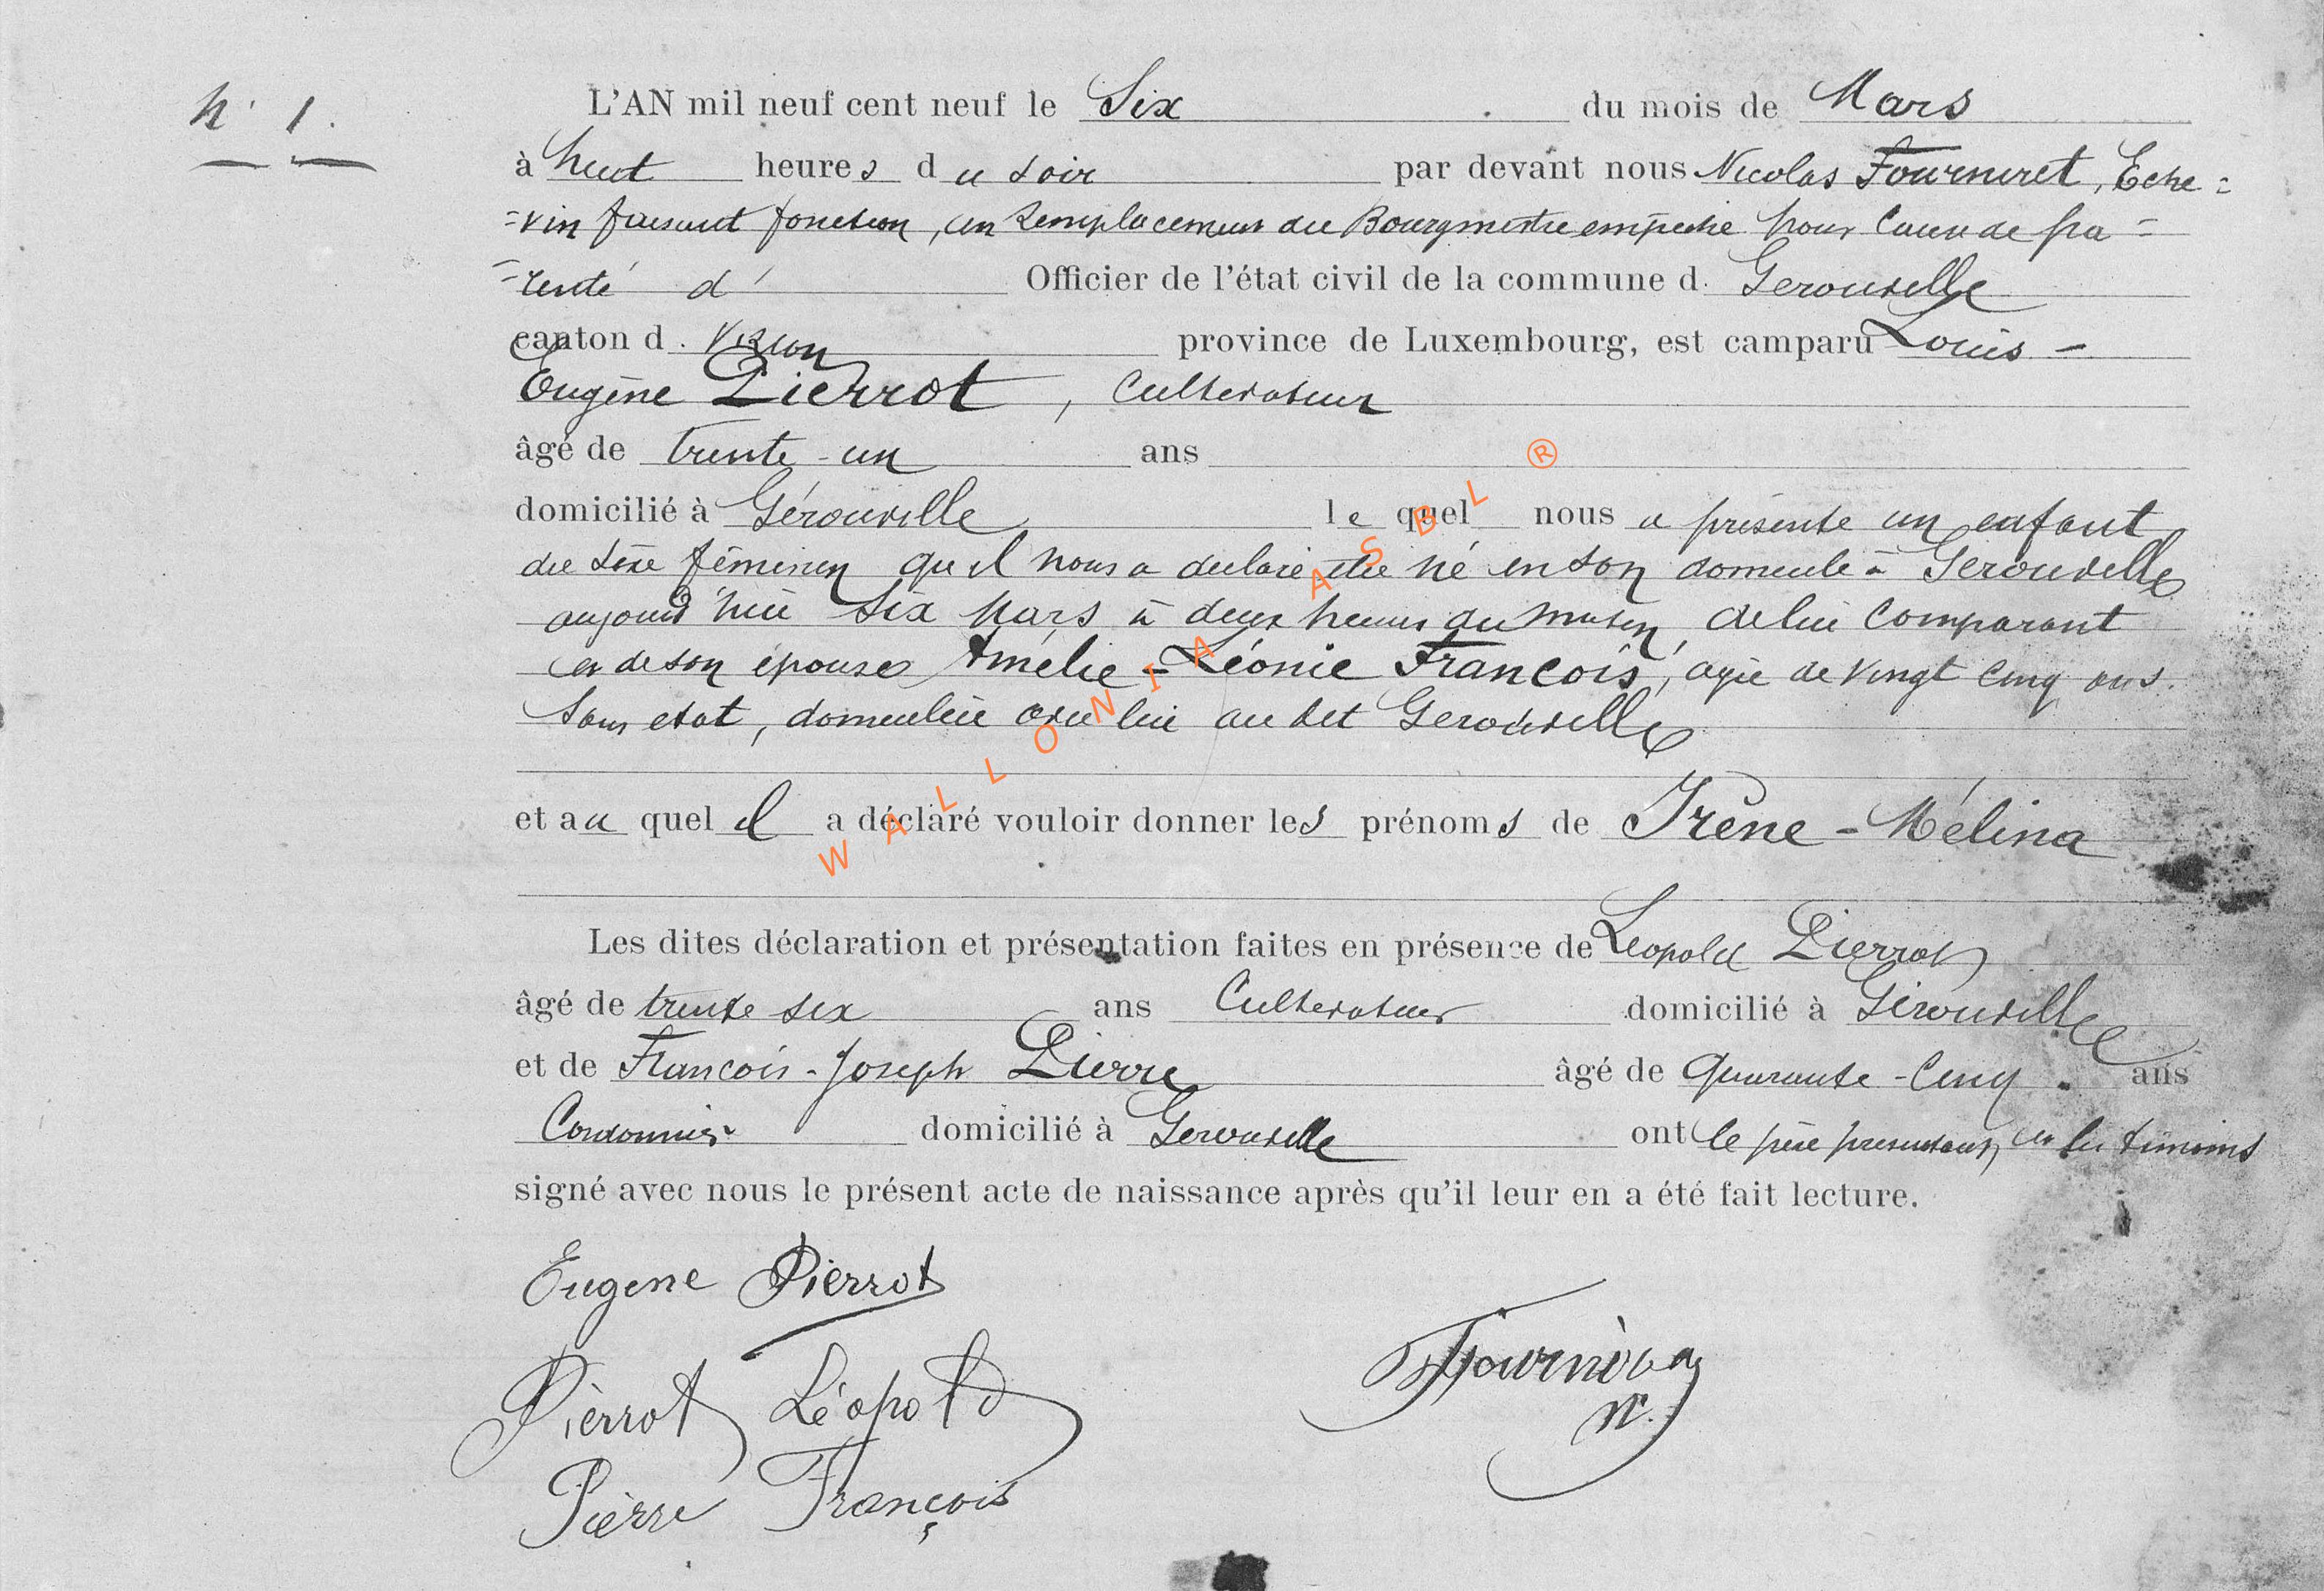 n° 1.
L'AN mil neuf cent neuf le Six du mois de Mars
à huit heures du soir par devant nous Nicolas Fourniret, Eche=
=vin faisant fonction, en remplacement du Bourgmestre empeché pour cause de pa=
=renté d' Officier de l'état civil de la commune d. Gerouville
canton d. Virton province de Luxembourg, est camparu Louis-
Eugène Pierrot, Cultivateur
âgé de trente-un ans
domicilié à Gérouville lequel nous a présenté un enfant
du sexe féminin qu'il nous a déclaré être né en son domicile à Gerouville
aujourd'hui six Mars à deux heures du matin, de lui Comparant
et de son épouse Amélie-Léonie François, agée de vingt cinq ans.
Sans etat, domiciliée avec lui au dit Gerouville
et au quel il a déclaré vouloir donner les prénoms de Irène-Mélina
Les dites déclaration et présentation faites en présence de Léopold Pierrot
âgé de trente six ans Cultivateur domicilié à Gérouville
et de François-Joseph Pierre âgé de quarante-cinq ans
Cordonnier domicilié à Gerouville ont le père présentant et les témoins
signé avec nous le présent acte de naissance après qu'il leur en a été fait lecture.
Eugene Pierrot
Pierrot Léopold
Pierre François
N.
WALLONIA ASBL ®